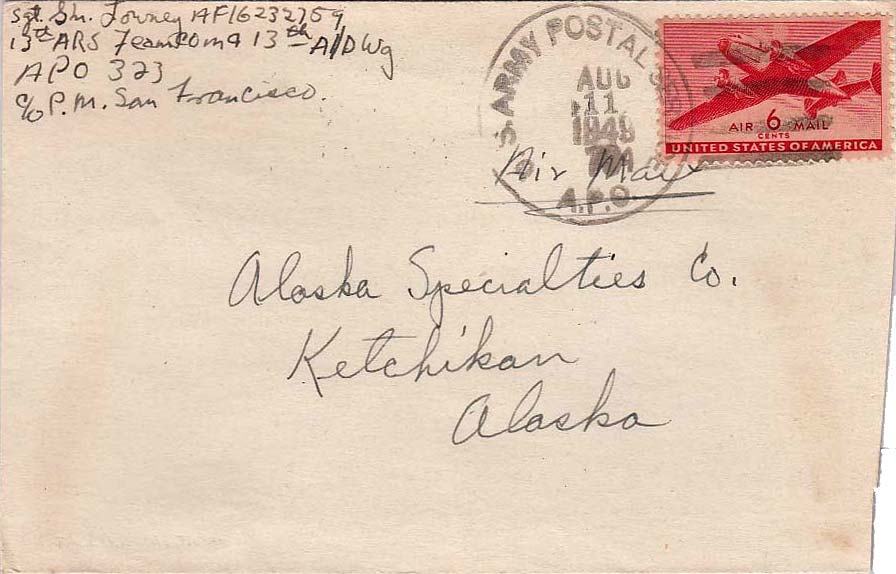 Sgt. Lowney AF16232759
13th ARS Feamcom 13th A/D Wg
APO 323
c/o P.M. San Francisco.
U.S. ARMY POSTAL
AUG
11
1949
A.P.O.
AIR 6 MAIL
CENTS
UNITED STATES OF AMERICA
Air Mail
Alaska Specialties Co.
Ketchikan
Alaska